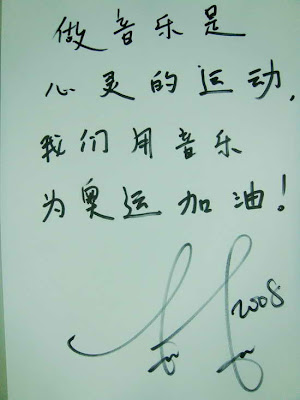 做音乐是
心灵的运动,
我们用音乐
为奥运加油!
2008